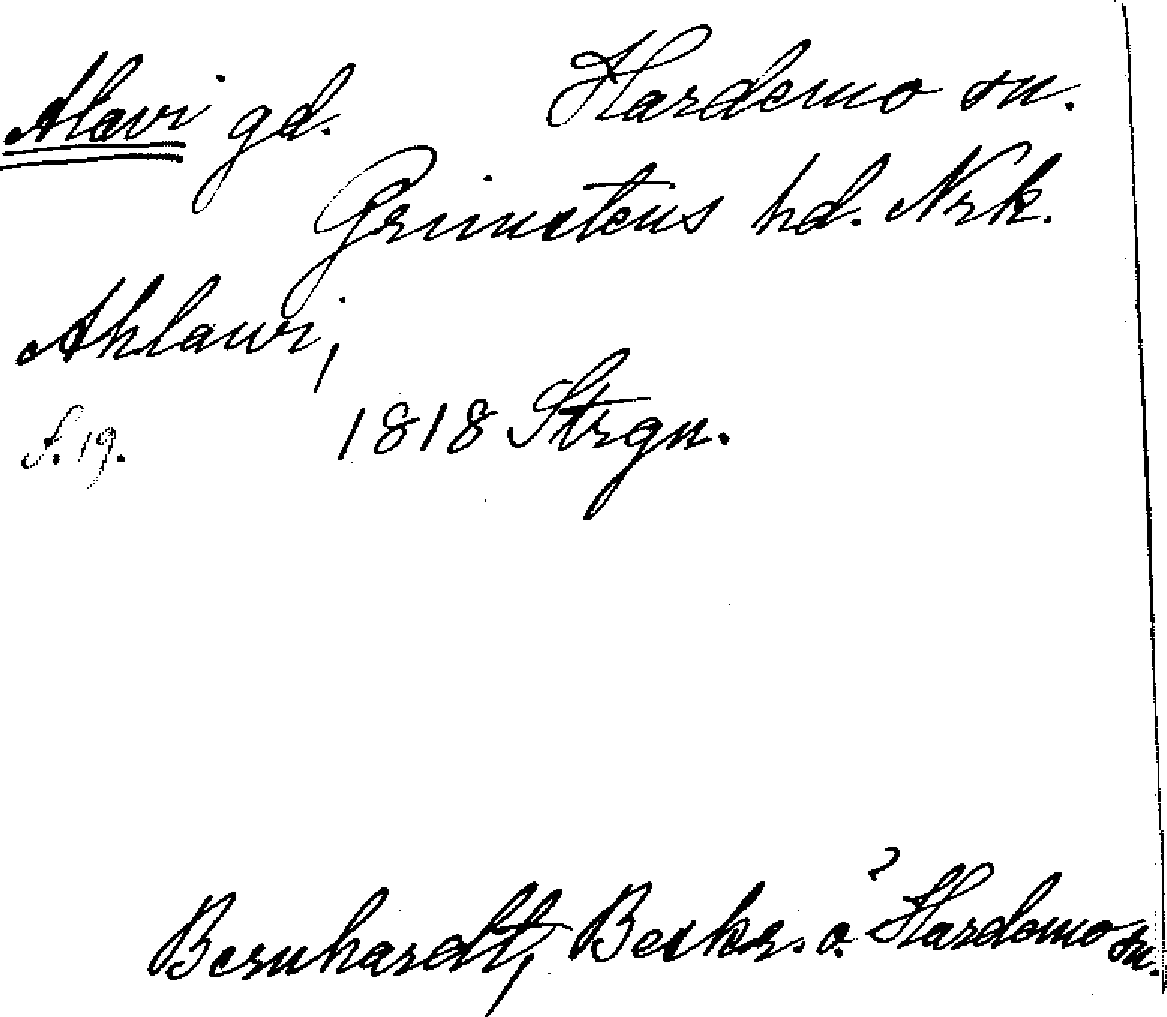 Alavi gd. Hardemo sn.
Grimstens hd. Nrk.
Ahlawi,
S. 19. 1818 Strgn.
Bernhardt, Beskr. ö. Hardemo sn.